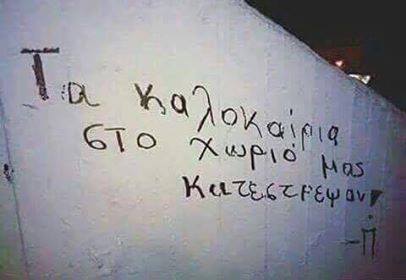 Τα καλοκαίρια
στο χωριό μας
κατεστρεψαν
-Π